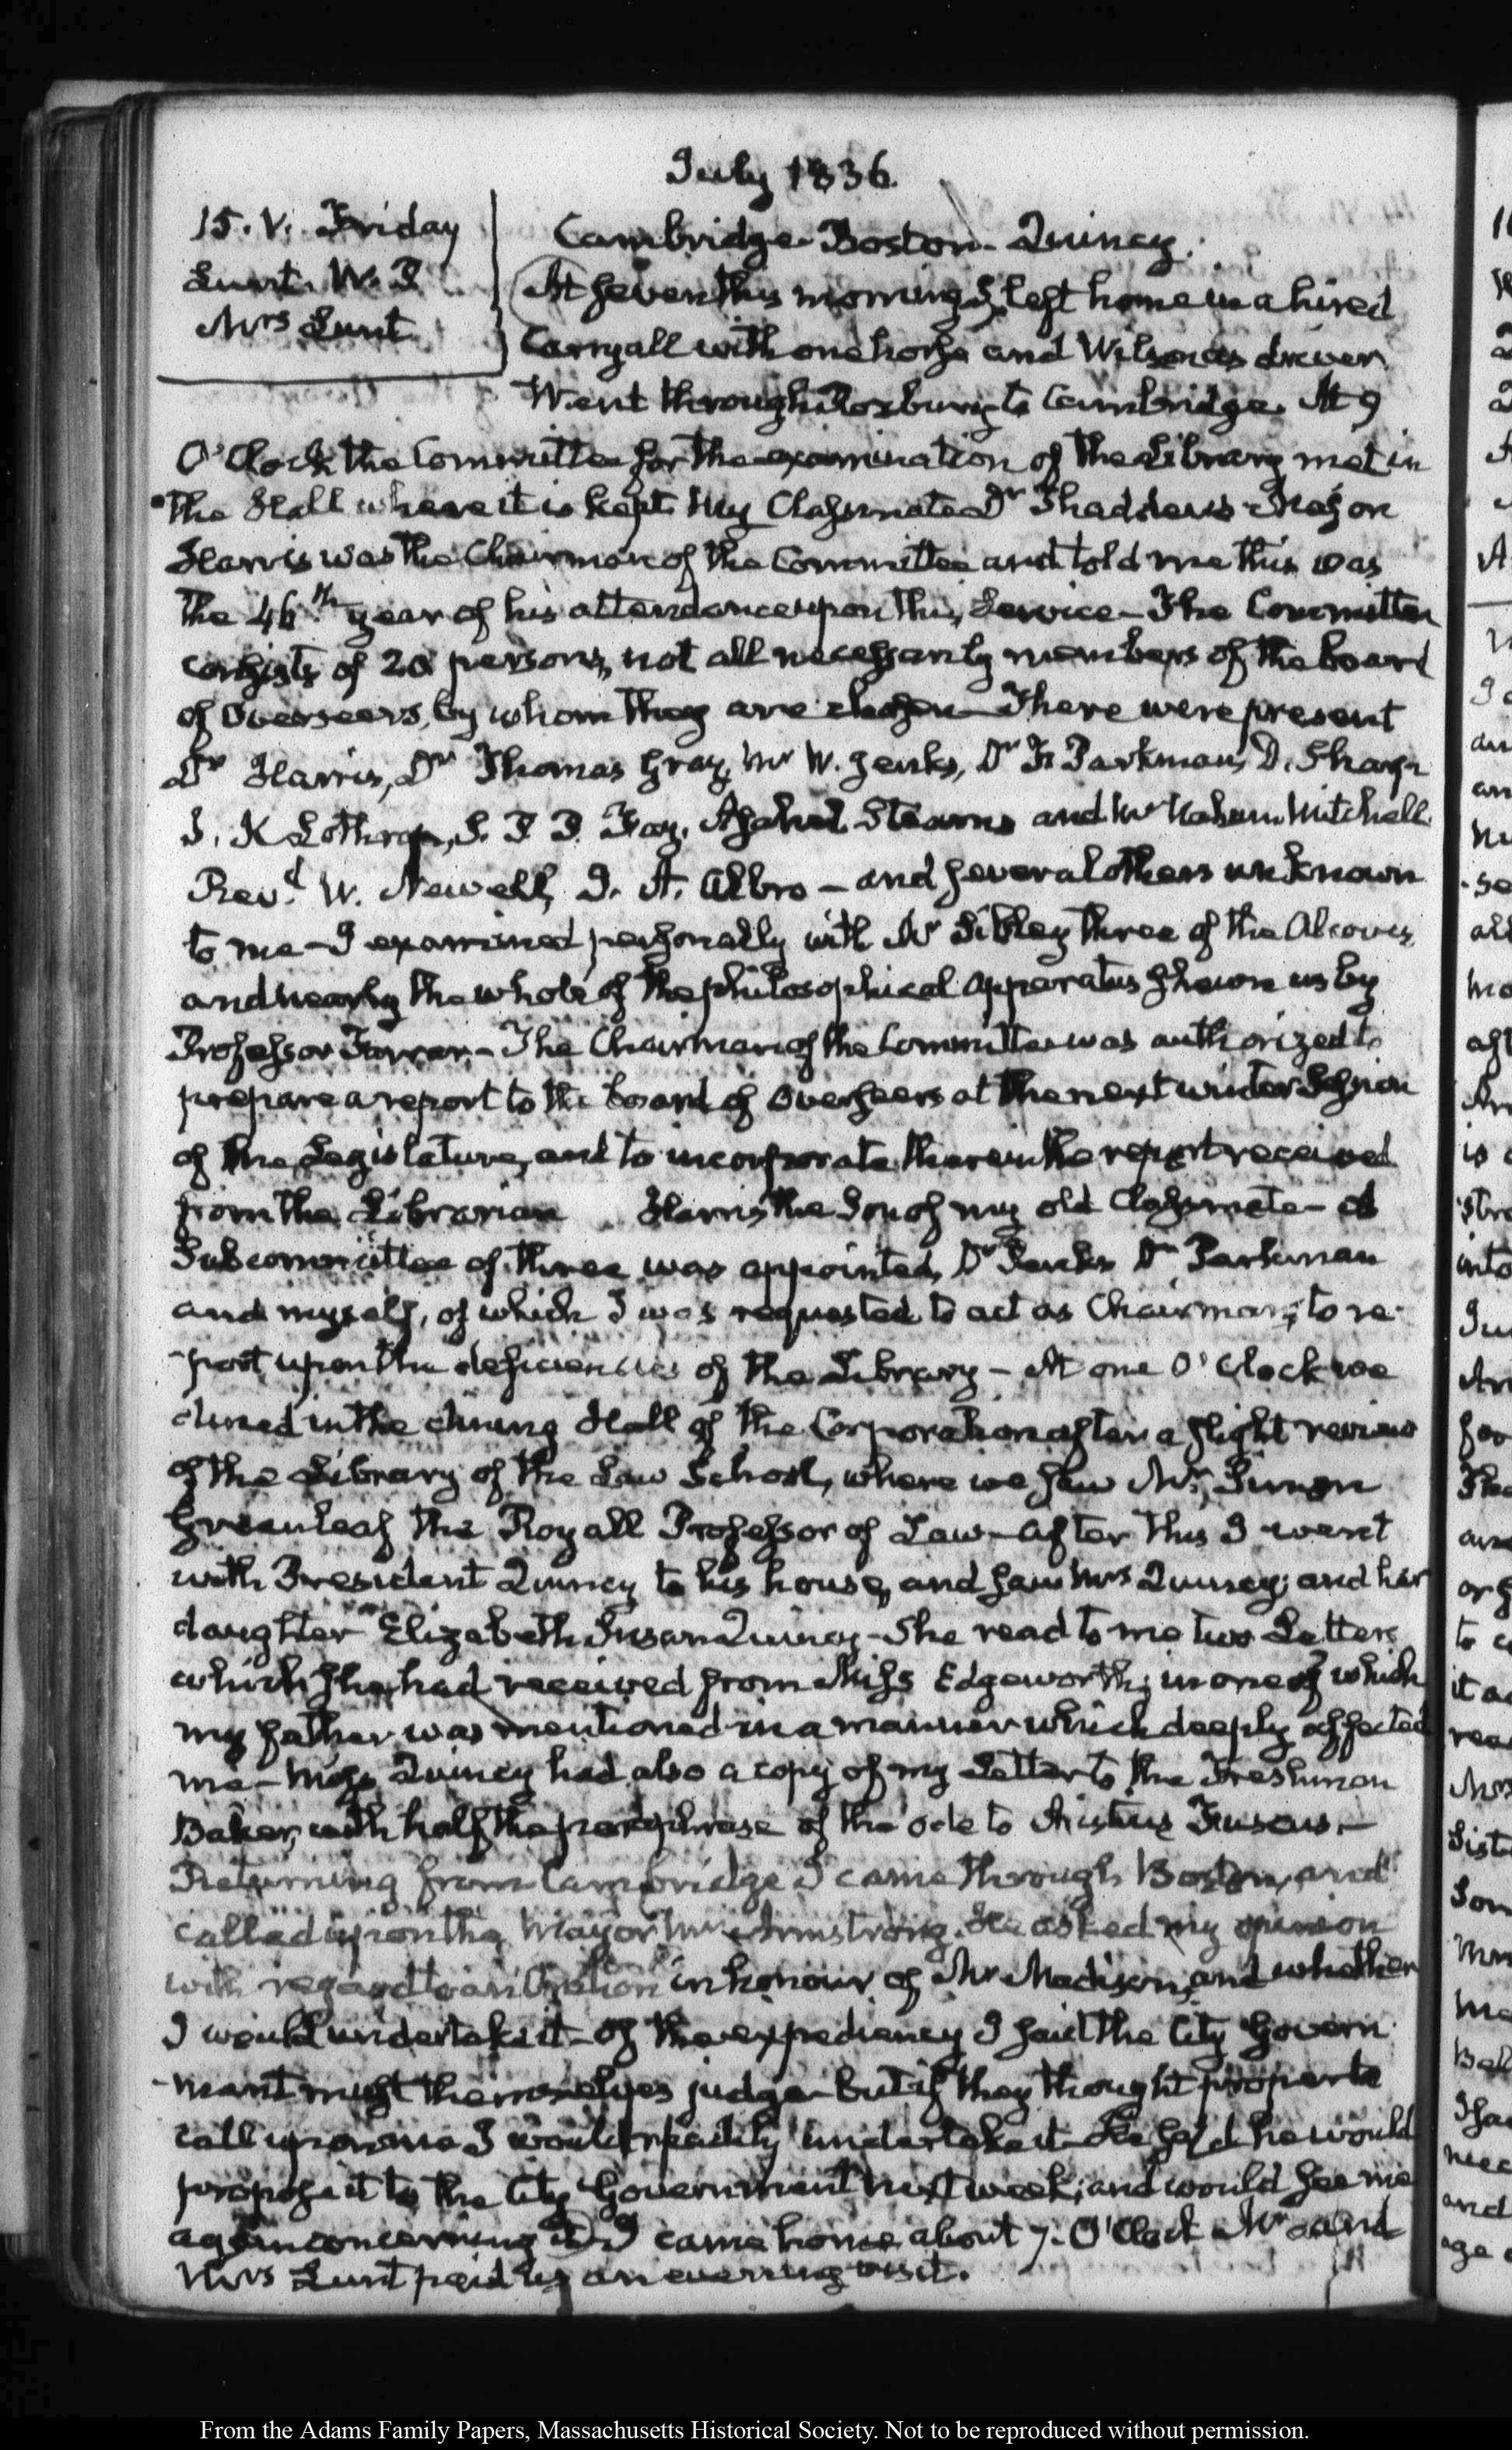 July 1836.
15. V. Friday
Lunt. W. P
Mrs Lunt
Cambridge. Boston. Quincy.
At seven this morning I left home in a hired
Carryall with one horse and Wilson as driver
Went through Roxbury to Cambridge. At 9
O'Clock the Committee for the examination of the Library met in
the Hall where it is kept. My Classmate Dr Thaddeus Mason
Harris was the Chairman of the Committee and told me this was
the 46th year of his attendance upon this service — The Committee
consists of 20 persons, not all necessarily members of the board
of Overseers, by whom they are chosen — There were present
Dr Harris, Dr Thomas Gray, Mr W. Jenks, Dr F. Parkman, D. Sharp
S. K Lothrop, S. P. P. Fay, Asahel Stearns and Mr Nahum Mitchell
Revd. W. Newell, J. A. Albro — and several others unknown
to me — I examined personally with Mr Sibley three of the Alcoves
and nearly the whole of the philosophical apparatus shewn us by
Professor Farrar — The Chairman of the Committee was authorized to
prepare a report to the board of Overseers at the next winter Session
of the Legislature, and to incorporate therein the report received
from the Librarian Harris the Son of my old Classmate — A
Subcommittee of three was appointed, Dr Jenks Dr Parkman
and myself, of which I was requested to act as Chairman, to re-
-port upon the deficiencies of the Library — At one O'Clock we
dined in the dining Hall of the Corporation after a slight review
of the Library of the Law School, where we saw Mr. Simon
Greenleaf the Royall Professor of Law — After this I went
with President Quincy to his house, and saw Mrs Quincy; and her
daughter Elizabeth Susan Quincy — She read to me two Letters
which she had received from Miss Edgeworth; in one of which
my father was mentioned in a manner which deeply affected
me — Miss Quincy had also a copy of my Letter to the Freshman
Baker, with half the paraphrase of the ode to Aristius Fuscus —
Returning from Cambridge I came through Boston, and
called upon the Mayor Mr Armstrong. He asked my opinion
with regard to an Oration in honour of Mr Madison, and whether
I would undertake it — Of the expediency I said the City Govern-
-ment must themselves judge — but if they thought proper to
call upon me I would readily undertake it — He said he would
propose it to the City Government next week; and would see me
again concerning it. I came home about 7. O'Clock Mr and
Mrs Lunt paid us an evening visit.
From the Adams Family Papers, Massachusetts Historical Society. Not to be reproduced without permission.